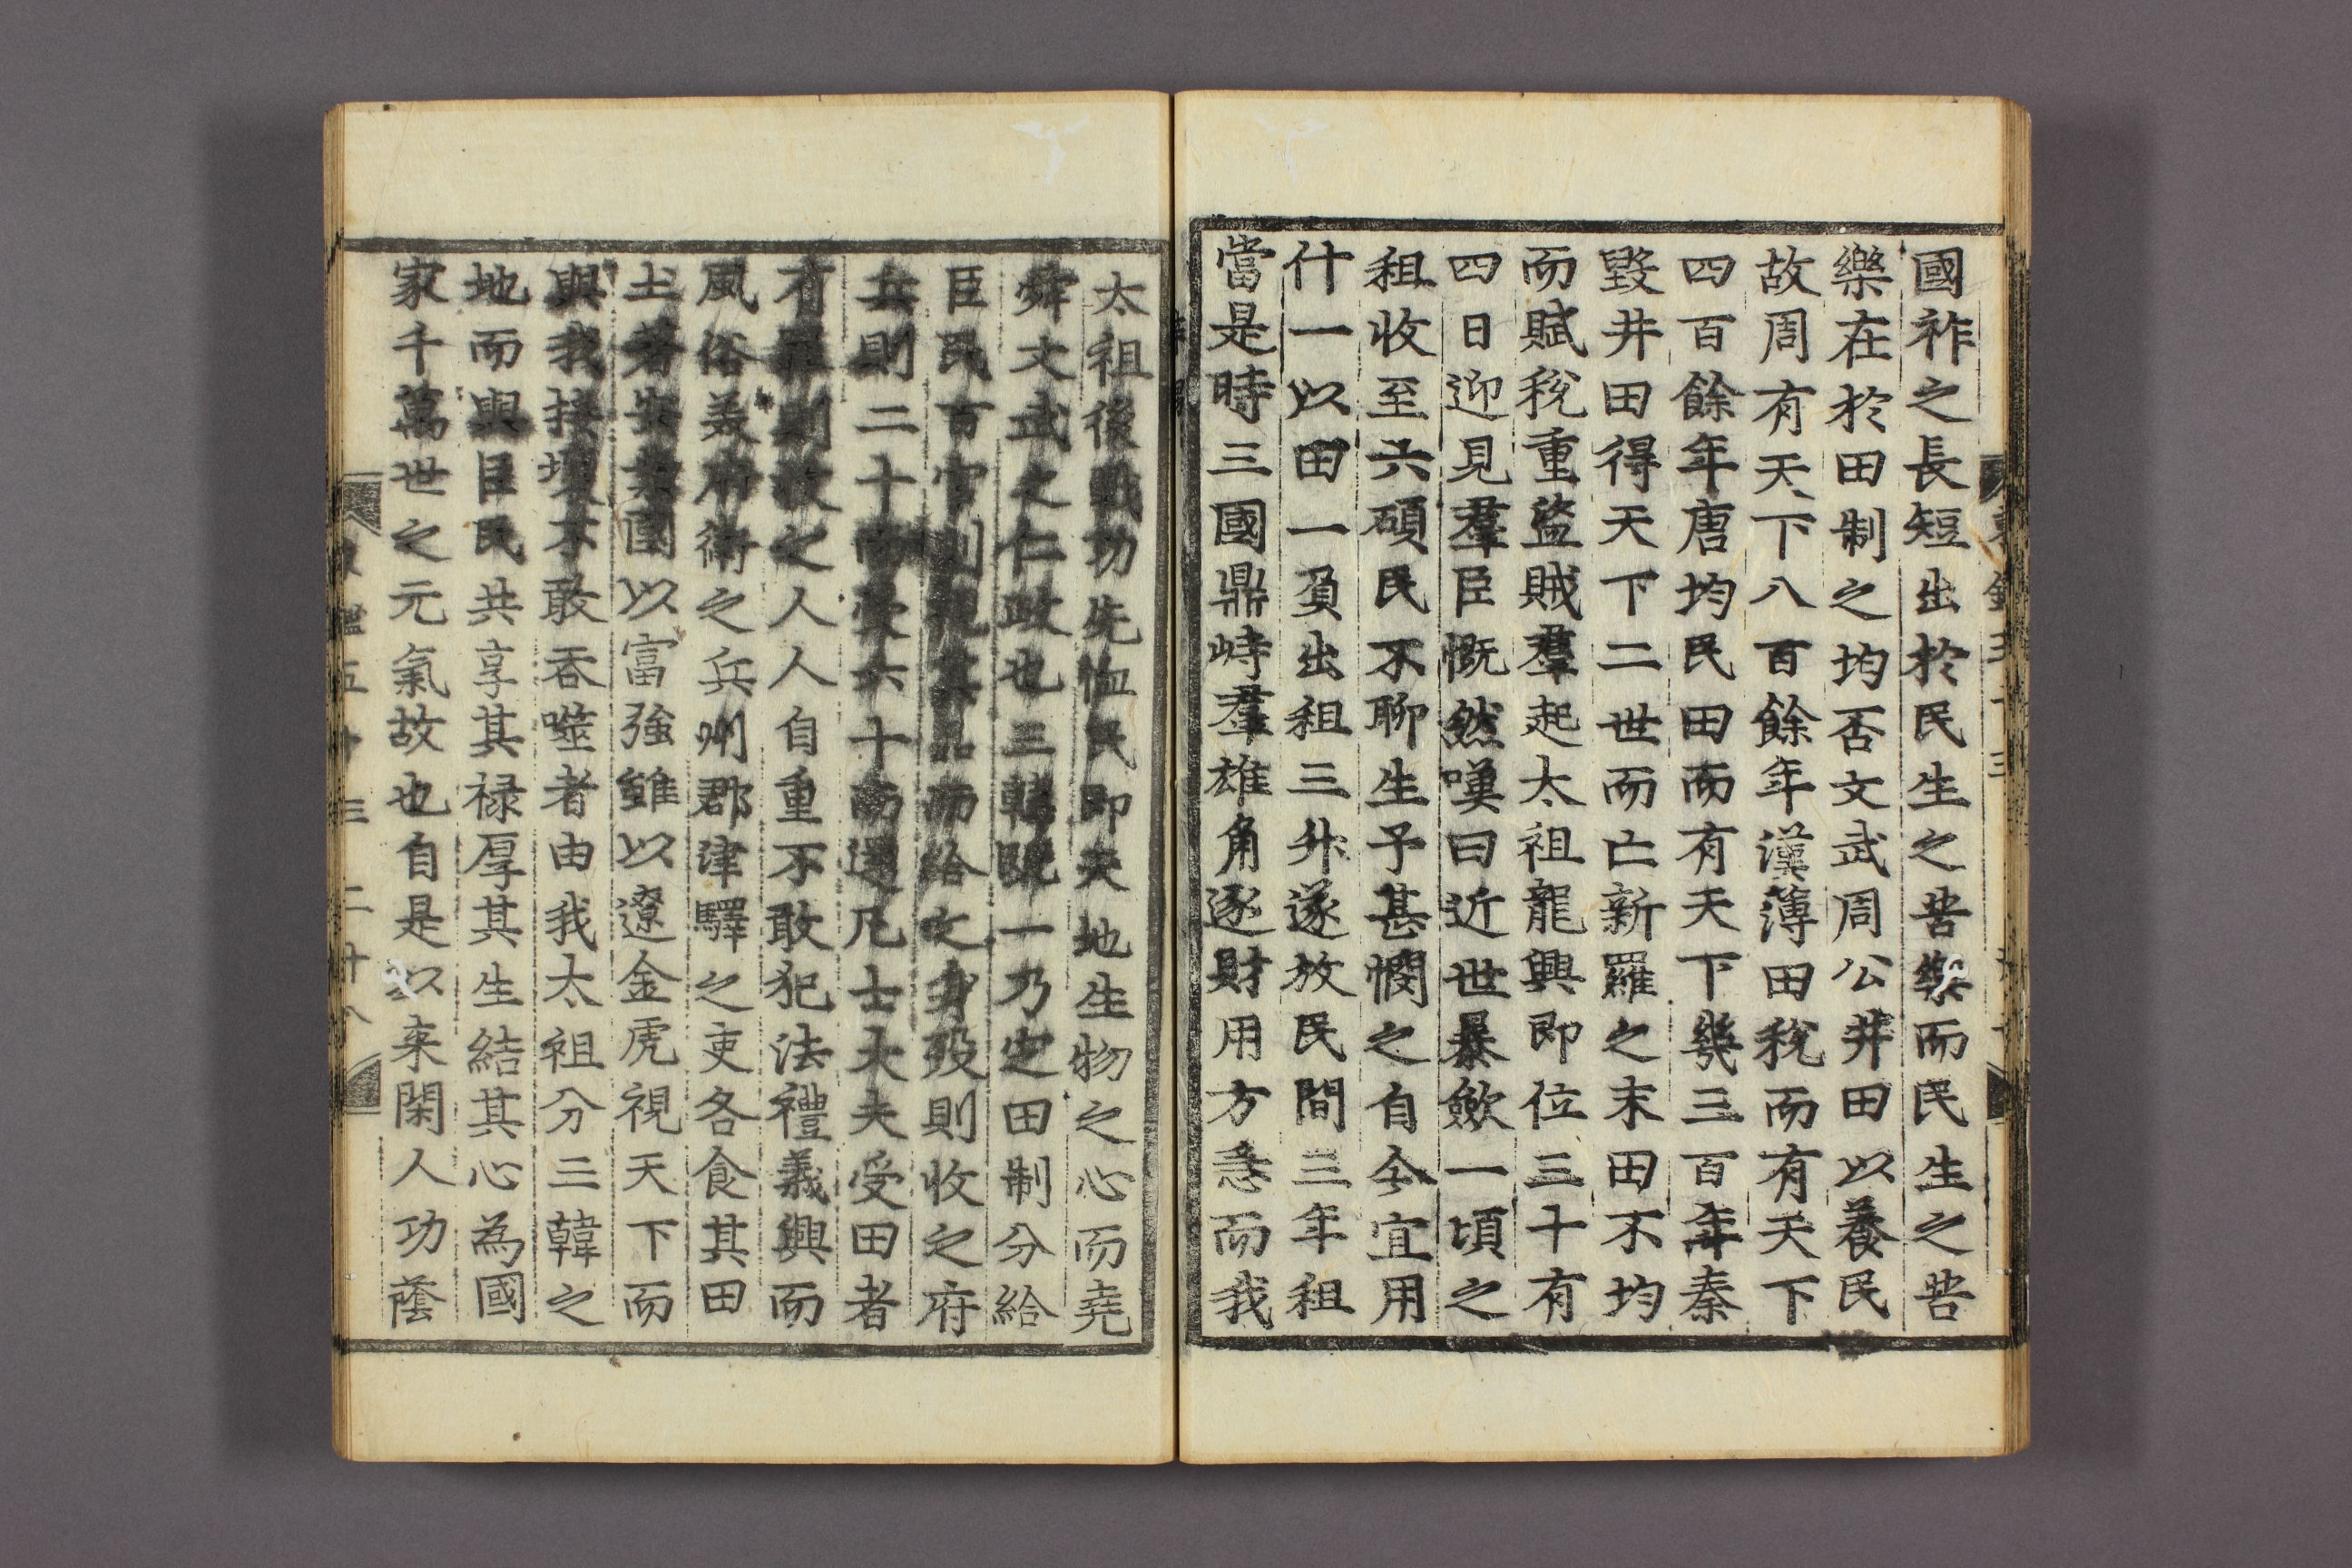 國祚之長短出於民生之苦樂而民生之苦
樂在於田制之均否文武周公井田以養民
故周有天下八百餘年漢薄田稅而有天下
四百餘年唐均民田而有天下幾三百年秦
毀井田得天下二世而亡新羅之末田不均
而賦稅重盜賊羣起太祖龍興即位三十有
四日迎見羣臣慨然嘆曰近世暴斂一頃之
租收至六碩民不聊生予甚憫之自今宜用
什一以田一負出租三升遂放民間三年租
當是時三國鼎峙羣雄角逐財用方急而我
太祖後戰功先恤民即天地生物之心而堯
舜文武之仁政也三韓旣一乃定田制分給
臣民百官則視其品而給之身歿則收之府
兵則二十而受六十而還凡士大夫受田者
有罪則收之人人自重不敢犯法禮義興而
風俗美府衛之兵州郡津驛之吏各食其田
土著安業國以富強雖以遼金虎視天下而
與我接壤不敢吞噬者由我太祖分三韓之
地而與臣民共享其祿厚其生結其心為國
家千萬世之元氣故也自是以来閑人功蔭
鑑五十三 二十八